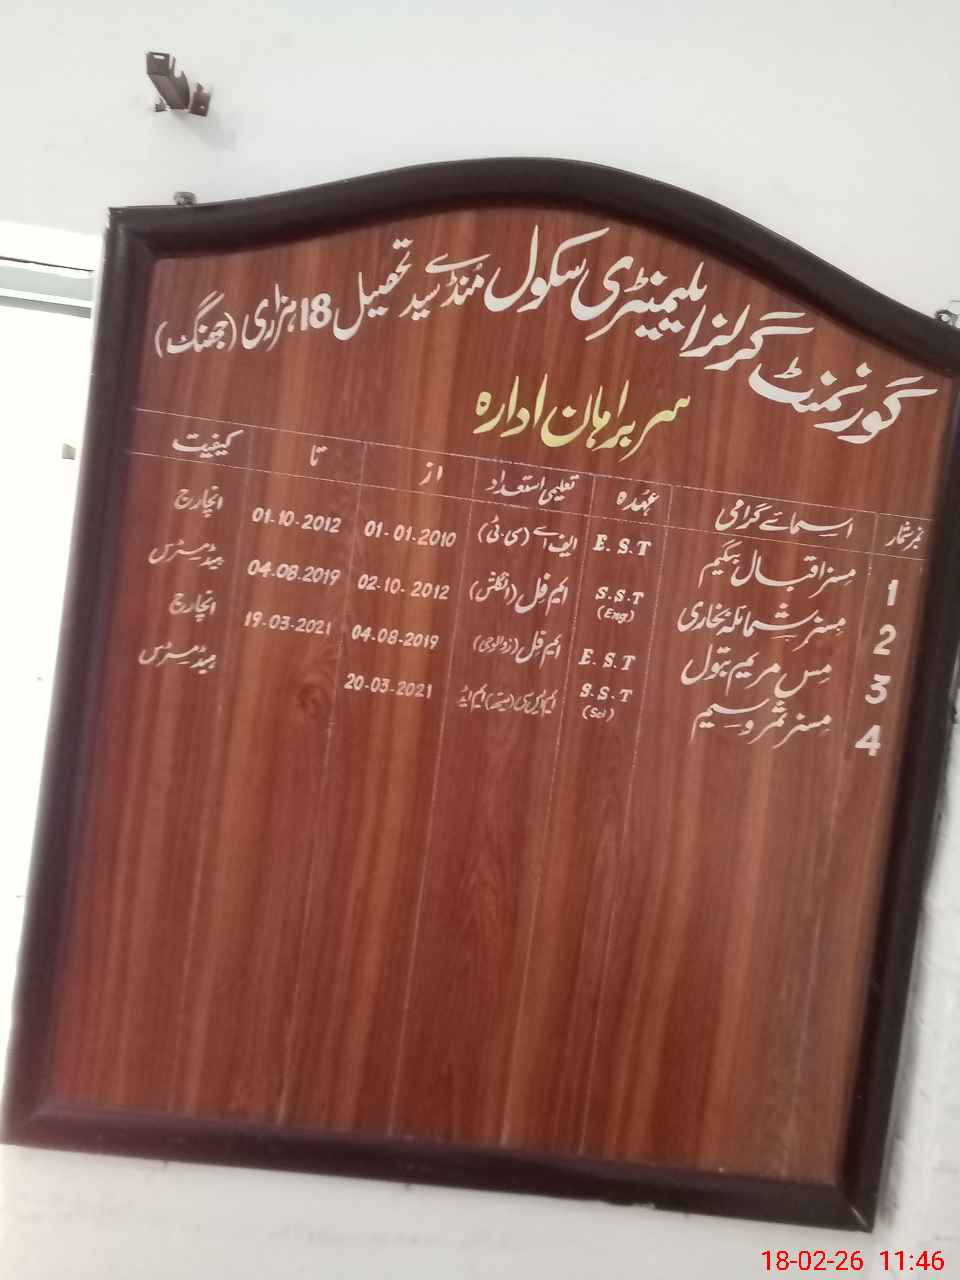 گورنمنٹ گرلز ایلیمنٹری سکول مُنڈے سید تحصیل 18 ہزاری (جھنگ)
سربراہان ادارہ
نمبر شمار اسمائے گرامی عہدہ تعلیمی استعداد از تا کیفیت
1 مسز اقبال بیگیم E.S.T ایف اے (سی.ٹی) 01-01-2010 01-10-2012 انچارج
2 مسز شمائلہ بخاری S.S.T (Eng) ایم فِل (انگلش) 02-10-2012 04.08.2019 ہیڈ مسٹرس
3 مس مریم بتول E.S.T ایم فِل (زوالوجی) 04-08-2019 19-03-2021 انچارج
4 مسز ثمر وسیم S.S.T (Sci) ایم ایس سی (میتھ) ایم ایڈ 20-03-2021 ہیڈ مسٹرس
18-02-26 11:46